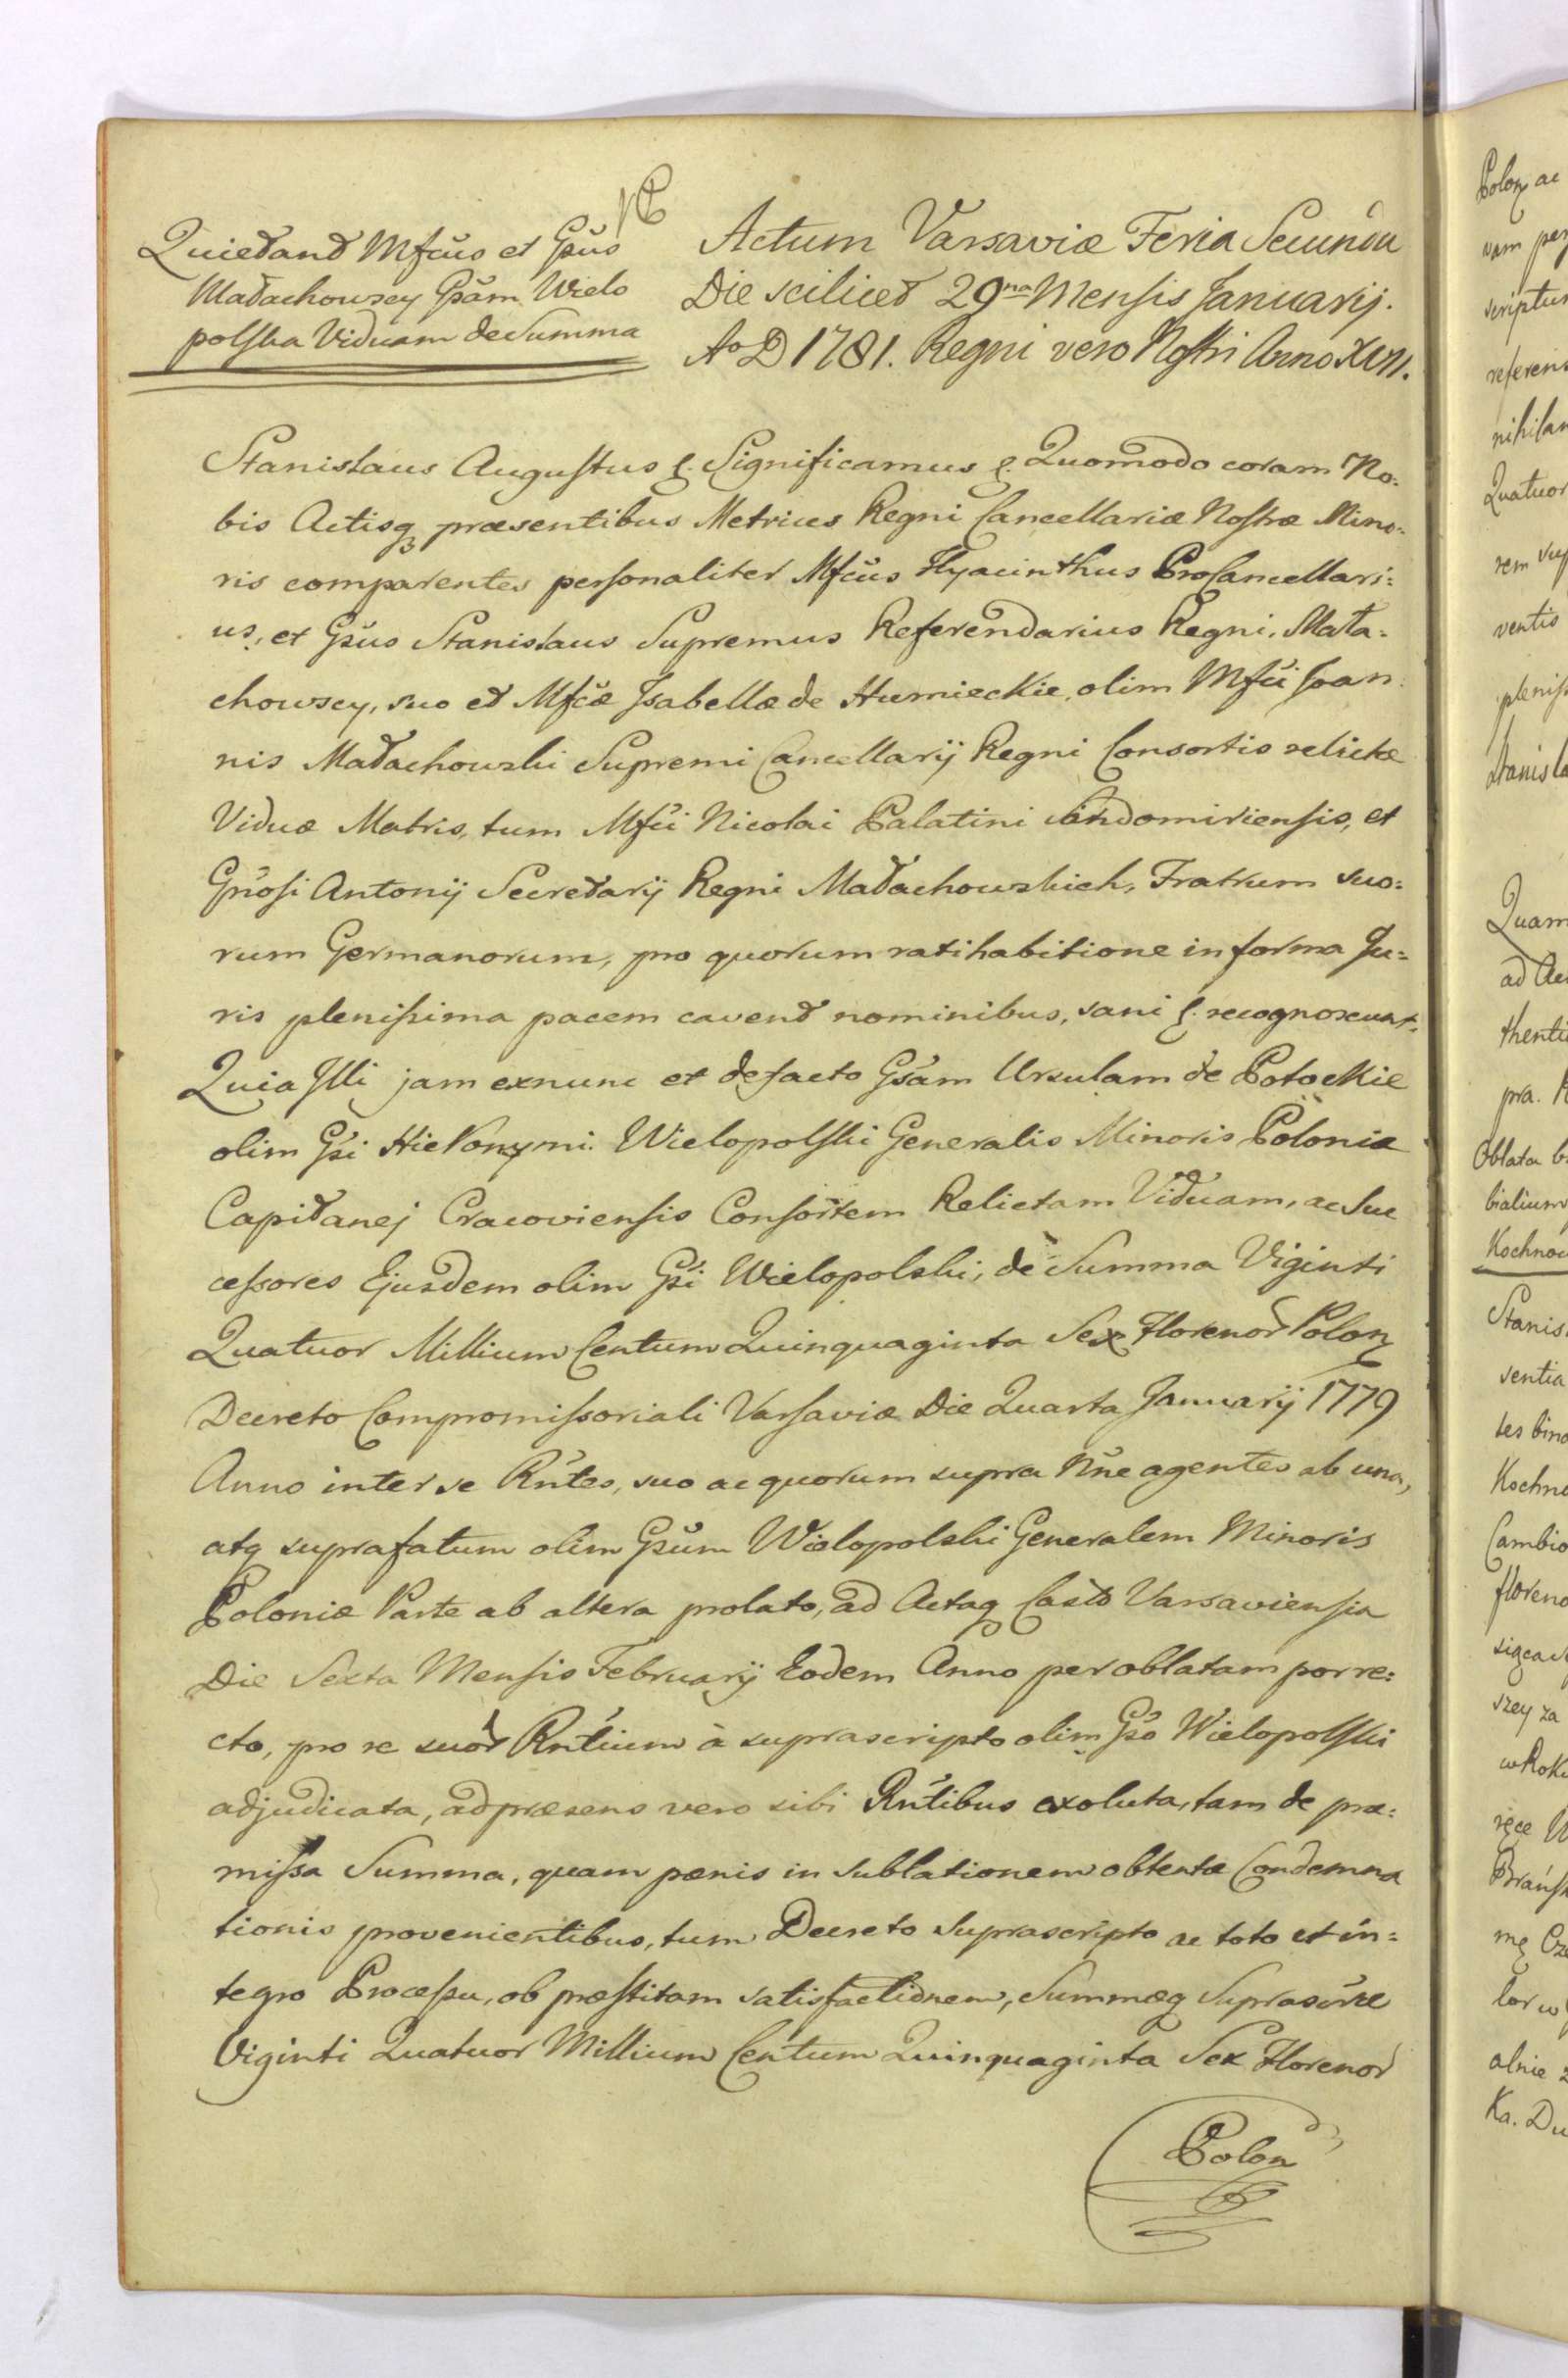 Quietand Mfcus et Gsus
Małachowscy Gsam Wielo
polska Viduam de Summa
Actum Varsaviæ Feria Secunda
Die scilicet 29na Mensis Januarij.
Ao D 1781. Regni vero Nostri Anno XVII.
Stanislaus Augustus &. Significamus &. Quomodo coram No:
bis Actisq præsentibus Metrices Regni Cancellariæ Nostræ Mino:
ris comparentes personaliter Mfcus Hyacinthus ProCancellari:
us, et Gsus Stanislaus Supremus Referendarius Regni, Mała:
chowscy, suo et Mfcæ Isabellæ de Humieckie, olim Mfci Joan
nis Małachowski Supremi Cancellarij Regni Consortis relictæ
Viduæ Matris, tum Mfci Nicolai Palatini Sandomiriensis, et
Gnosi Antonij Secretarij Regni Małachowskich, Fratrum suo:
rum Germanorum, pro quorum ratihabitione in forma Ju:
ris plenissima pacem cavend nominibus, sani &. recognoscunt,
Quia Illi jam exnunc et defacto Gsam Ursulam de Potockie
olim Gsi Hieronymi Wielopolski Generalis Minoris Poloniæ
Capitanej Cracoviensis Consortem Relictam Viduam, ac Suc
cessores Ejusdem olim Gsi Wielopolski, de Summa Viginti
Quatuor Millium Centum Quinquaginta Sex Florenor Polon
Decreto Compromissoriali Varsaviæ Die Quarta Januarij 1779
Anno inter se Rntes, suo ac quorum supra Nne agentes ab una,
atq suprafatum olim Gsum Wielopolski Generalem Minoris
Poloniæ Parte ab altera prolato, ad Actaq Castr Varsaviensia
Die Sexta Mensis Februarij Eodem Anno per oblatam porre:
cto, pro re suor Rntium à suprascripto olim Gso Wielopolski
adjudicata, ad præsens vero sibi Rntibus exoluta, tam de præ:
missa Summa, quam pœnis in sublationem obtentæ Condemna
tionis provenientibus, tum Decreto Suprascripto ac toto et in:
tegro Processu, ob præstitam satisfactionem, Summæq
Viginti Quatuor Millium Centum Quinquaginta Sex Florenor
Polon
Polon ac
scriptu
referens
nihilan
Quatuor
ventis
pleniss
Stanisla
Quam
ad Ac
thenti
pra.
Oblata
bialium
Kochnow
Stanis
sentia
tes bino
Kochno
Cambio
floreno
szey za
w Roku
ręce
Brańsk
mę Cze
lor w
alnie
Ka. Du